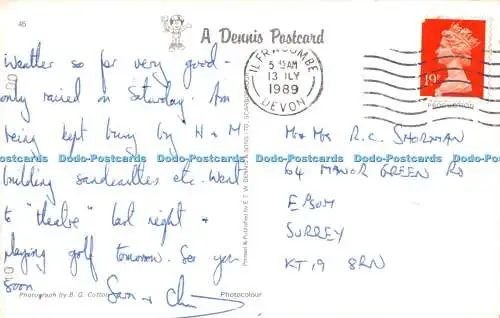 45
A Dennis Postcard
Weather so far very good -
only rained on Saturday. Am
being kept busy by H & M
building sandcastles etc. Went
to "theatre" last night &
playing golf tomorrow. See you
soon Sam &
Photograph by B. G. Cotton
Photocolour
Printed & Published by E. T. W. DENNIS & SONS LTD., SCARBOROUGH
ILFRACOMBE
5 15AM
13 JLY
1989
DEVON
19
Mr & Mrs R.C. SHORMAN
64 MANOR GREEN RD
EPSOM
SURREY
KT19 8RN
Dodo-Postcards Dodo-Postcards Dodo-Postcards Dodo-Postcards Dodo-Postcards